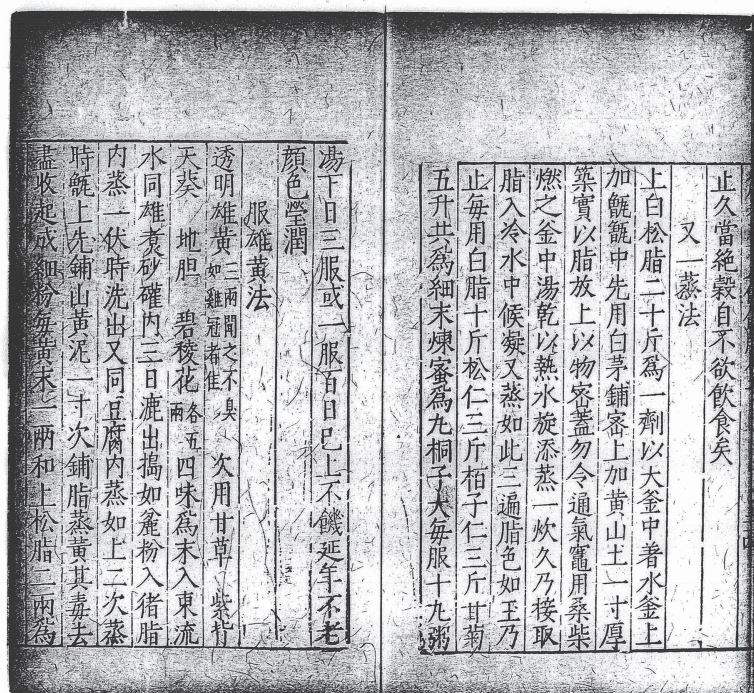 止久當絶穀自不欲飲食矣
又一蒸法
上白松脂二十斤爲一劑以大釜中著水釜上
加甑甑中先用白茅鋪密上加黄山土一寸厚
築實以脂放上以物密蓋勿令通氣竈用桑柴
燃之釜中湯乾以熱水旋添蒸一炊久乃接取
脂入冷水中候凝又蒸如此三遍脂色如玉乃
止每用白脂十斤松仁三斤栢子仁三斤甘菊
五升共爲細末煉蜜爲丸桐子大每服十丸粥
湯下日三服或一服百日已上不饑延年不老
顔色瑩潤
服雄黄法
透明雄黄三兩聞之不臭如雞冠者佳 次用甘草 紫背
天葵 地胆 碧稜花各五兩 四味爲末入東流
水同雄煮砂礶内三日漉出搗如麄粉入猪脂
内蒸一伏時洗出又同豆腐内蒸如上二次蒸
時甑上先鋪山黄泥一寸次鋪脂蒸黄其毒去
盡收起成細粉每黄末一兩和上松脂二兩爲